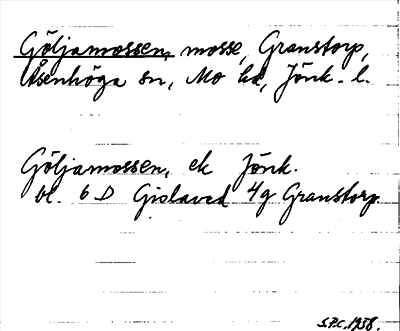 Göljamossen, mosse, Granstorp,
Åsenhöga sn, Mo hd, Jönk. l.
Göljamossen, ek Jönk.
bl. 6 D Gislaved 4g Granstorp.
S.P.C. 1958.